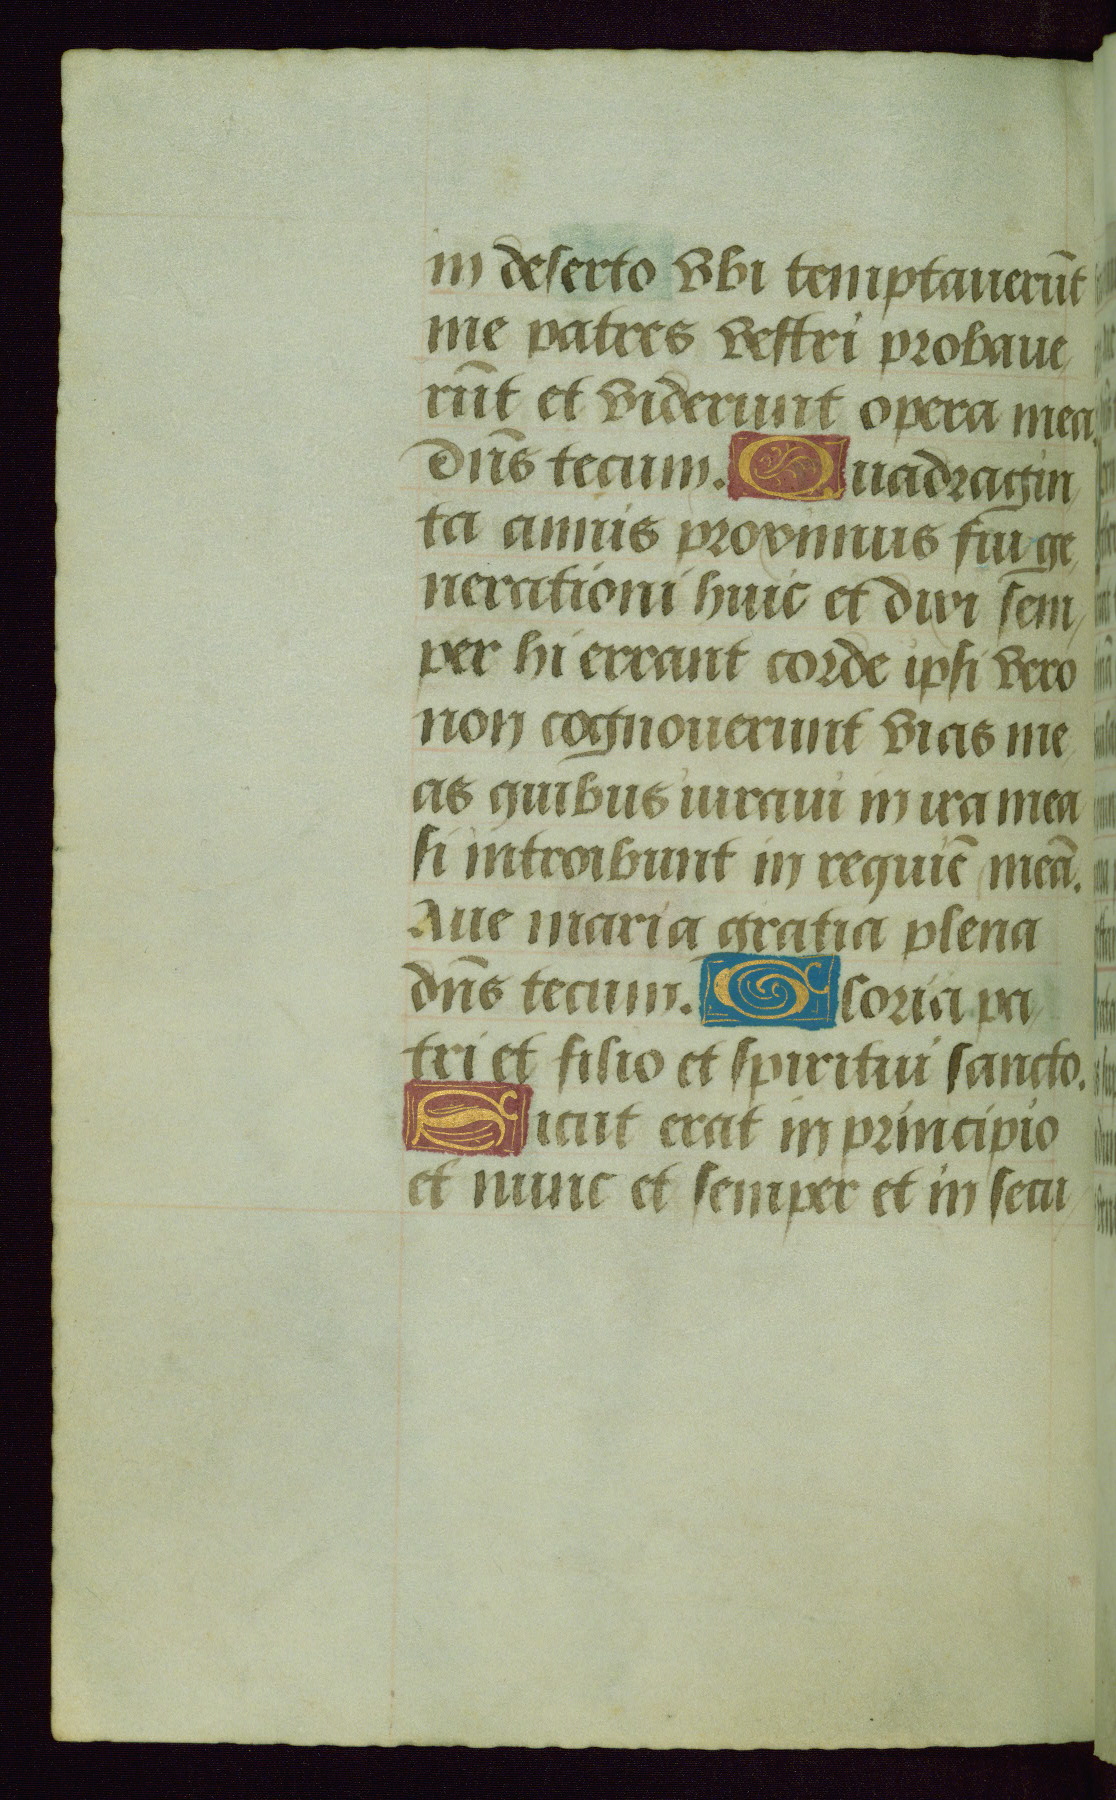 in deserto vbi temptauerūt
me patres vestri probaue
rūt et viderunt opera mea.
Dn̄s tecum. Quadragin
ta annis proximus fui ge
nerationi huic et dixi sem
per hi errant corde ipsi vero
non cognouerunt vias me
as quibus iuraui in ira mea
si introibunt in requiē meā.
Aue maria gratia plena
dn̄s tecum. Gloria pa
tri et filio et spiritui sancto.
Sicut erat in principio
et nunc et semper et in secu